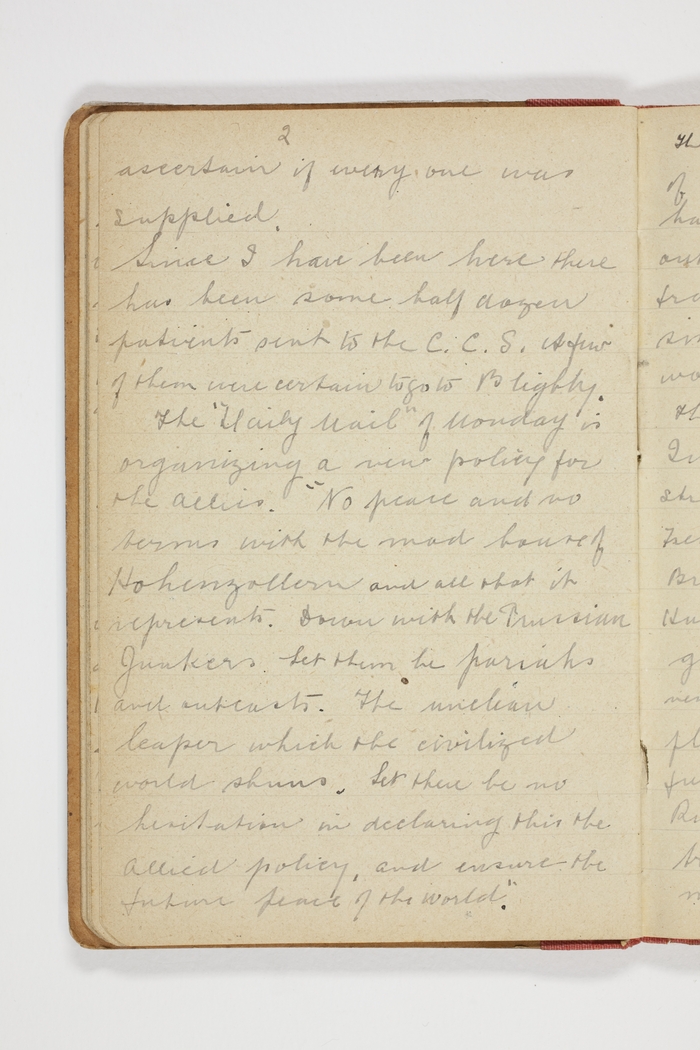 2
ascertain if every one was
supplied.
Since I have been here there
has been some half dozen
patients sent to the C. C. S. A few
of them were certain to go to Blighty.
The "Daily Mail" of Monday is
organizing a new policy for
the allies. "No peace and no
terms with the mad house of
Hohenzollern and all that it
represents. Down with the Prussian
Junkers. Let them be pariahs
and outcasts. The unclean
leaper which the civilized
world shuns. Let there be no
hesitation in declaring this the
Allied policy, and ensure the
future peace of the world".
Th
of
ha